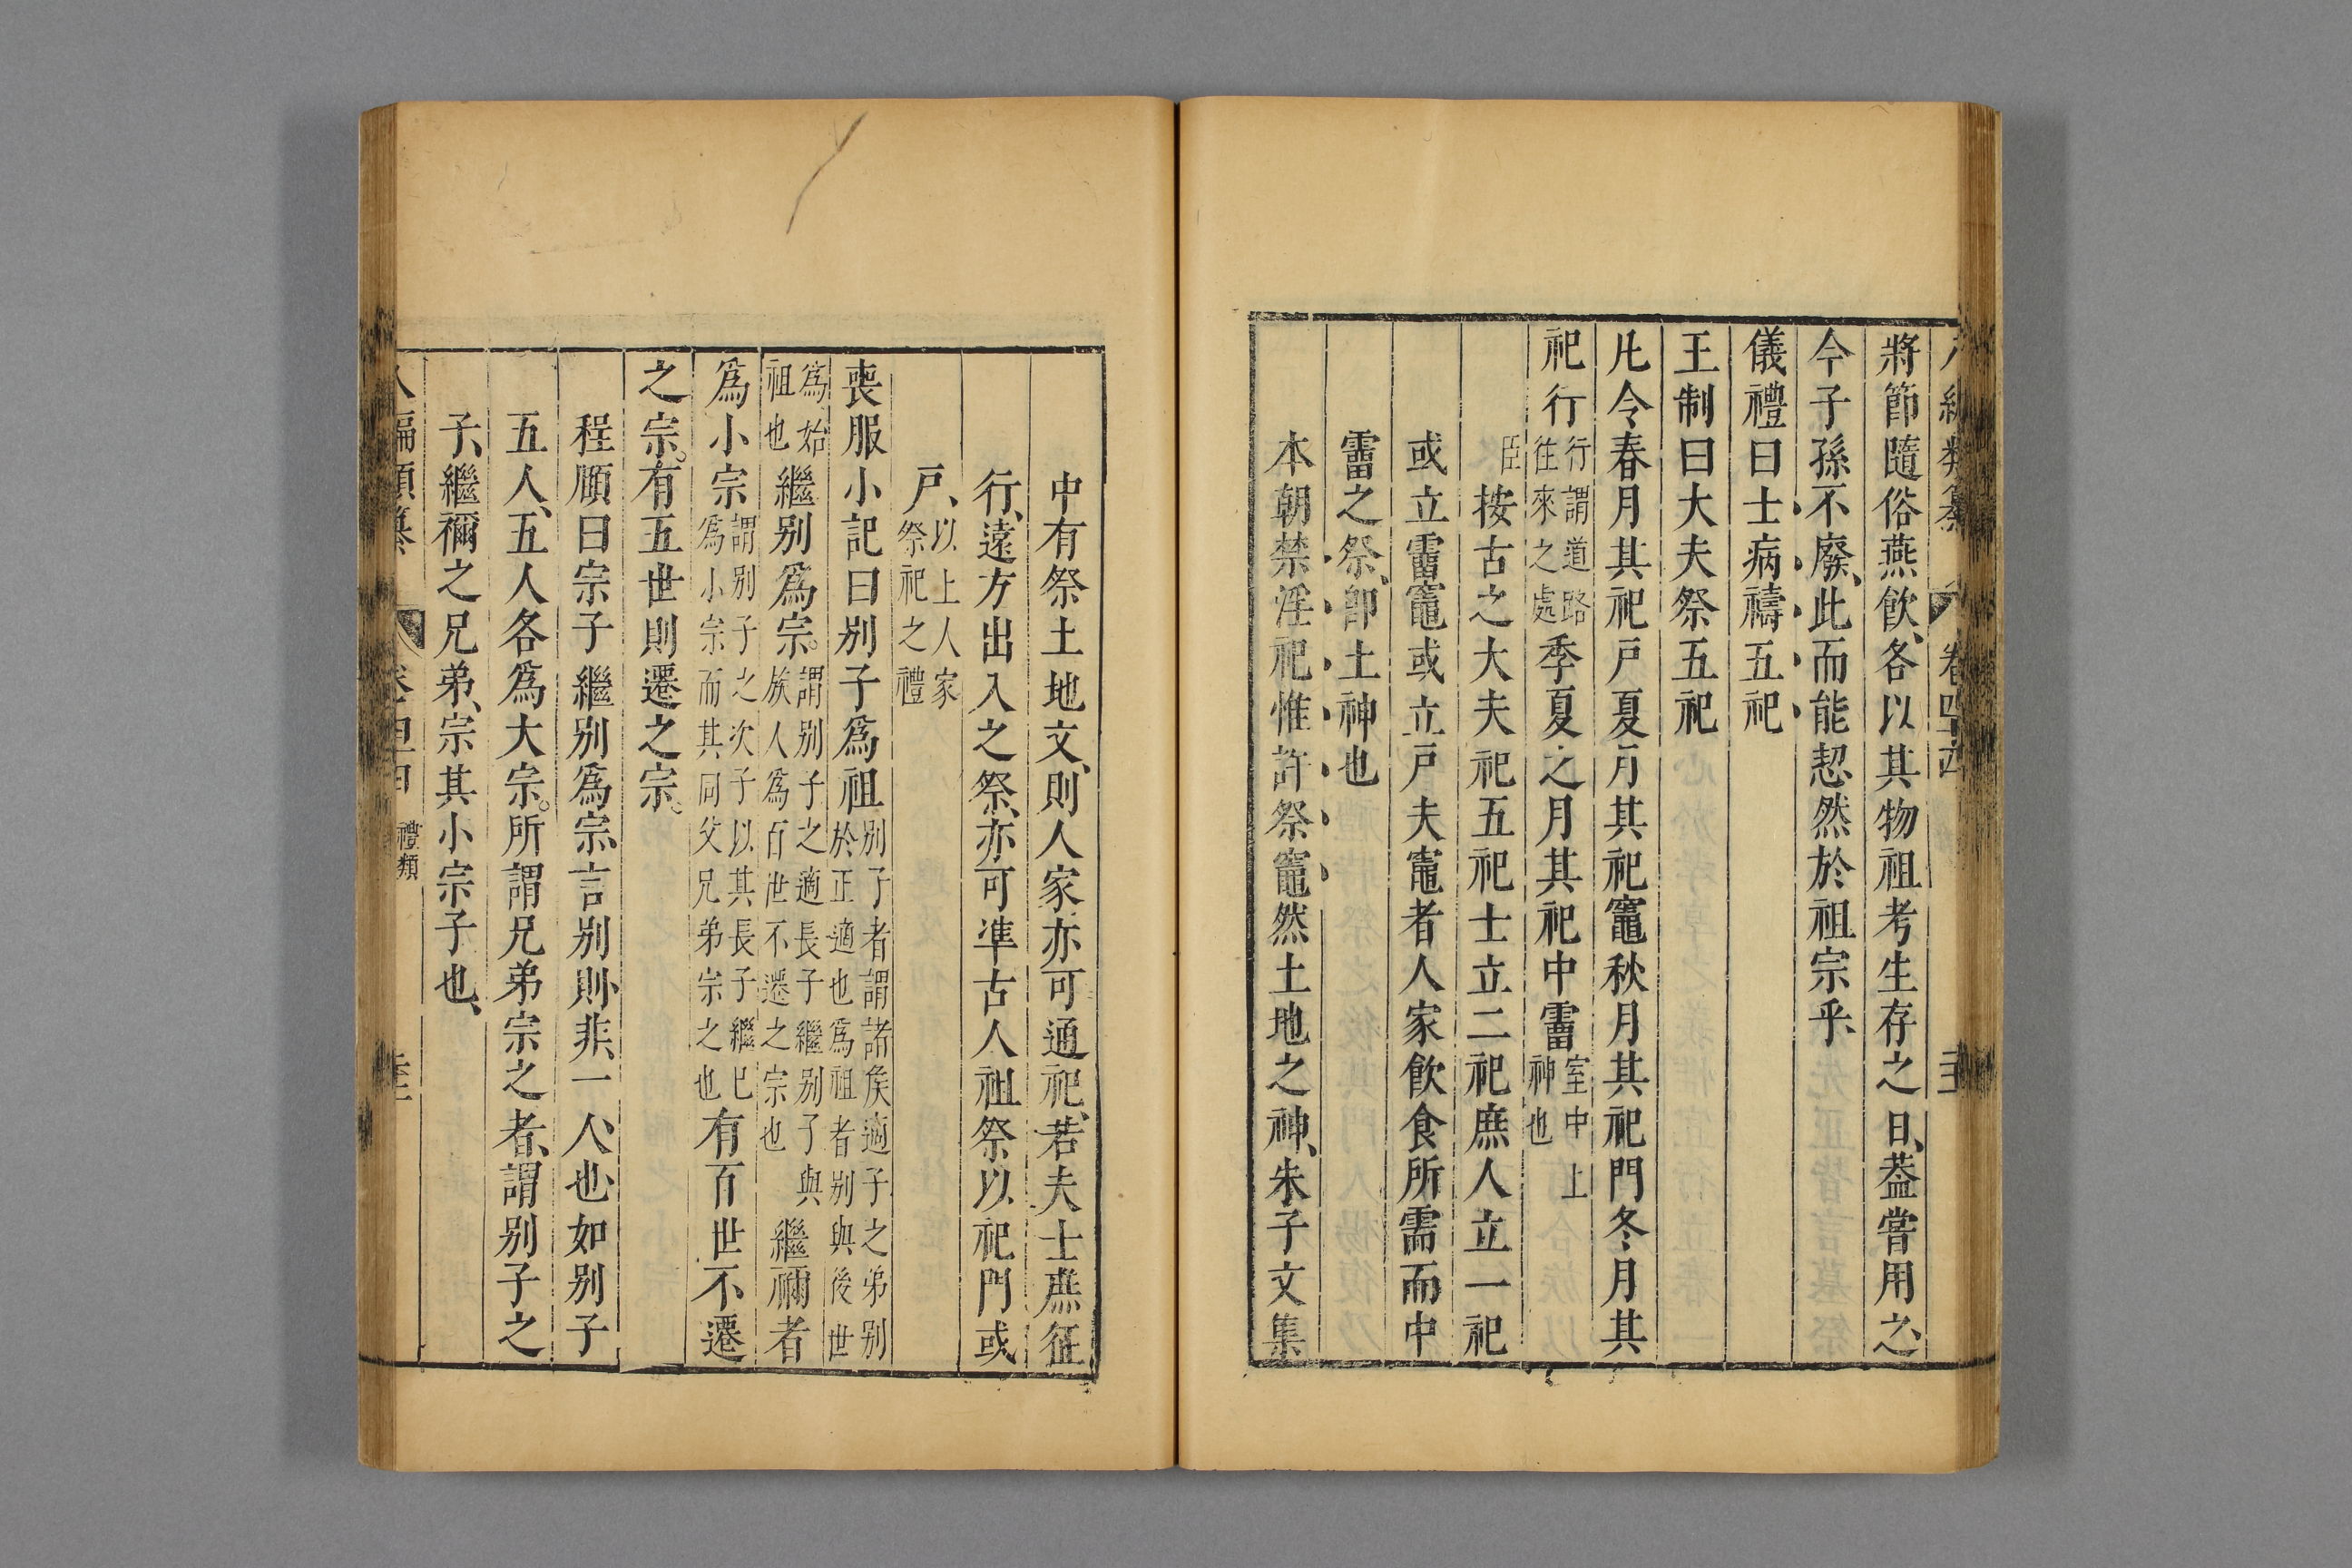 將節隨俗燕飲各以其物祖考生存之日葢嘗用之
今子孫不廢此而能恝然於祖宗乎
儀禮曰士病禱五祀
王制曰大夫祭五祀
凡令春月其祀戸夏月其祀竈秋月其祀門冬月其
祀行行謂道路
徃來之處季夏之月其祀中霤室中上
神也
臣按古之大夫祀五祀士立二祀庶人立一祀
或立霤竈或立戸夫竈者人家飲食所需而中
霤之祭卽土神也
本朝禁淫祀惟許祭竈然土地之神朱子文集
中有祭土地文則人家亦可通祀若夫士庶征
行遠方出入之祭亦可凖古人祖祭以祀門或
戸以上人家
祭祀之禮
喪服小記曰别子爲祖别子者謂諸矦適子之弟别
於正適也爲祖者别與後世
爲始
祖也繼别爲宗謂别子之適長子繼别子與
族人爲百世不遷之宗也繼禰者
爲小宗謂别子之次子以其長子繼已
爲小宗而其同父兄弟宗之也有百世不遷
之宗有五世則遷之宗
程頤曰宗子繼别爲宗言别則非一人也如别子
五人五人各爲大宗所謂兄弟宗之者謂别子之
子繼禰之兄弟宗其小宗子也
禮類